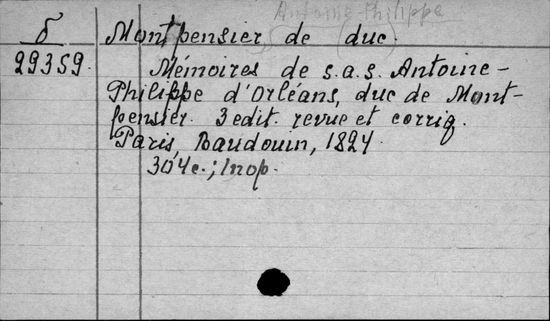 Antoine-Philippe
б Montpensier de (duc.
29359. Mémoires de s.a.s. Antoine-
Philippe d'Orléans, duc de Mont-
pensier. 3 edit. revue et corrig.
Paris, Baudouin, 1824.
304c.; 1пор.